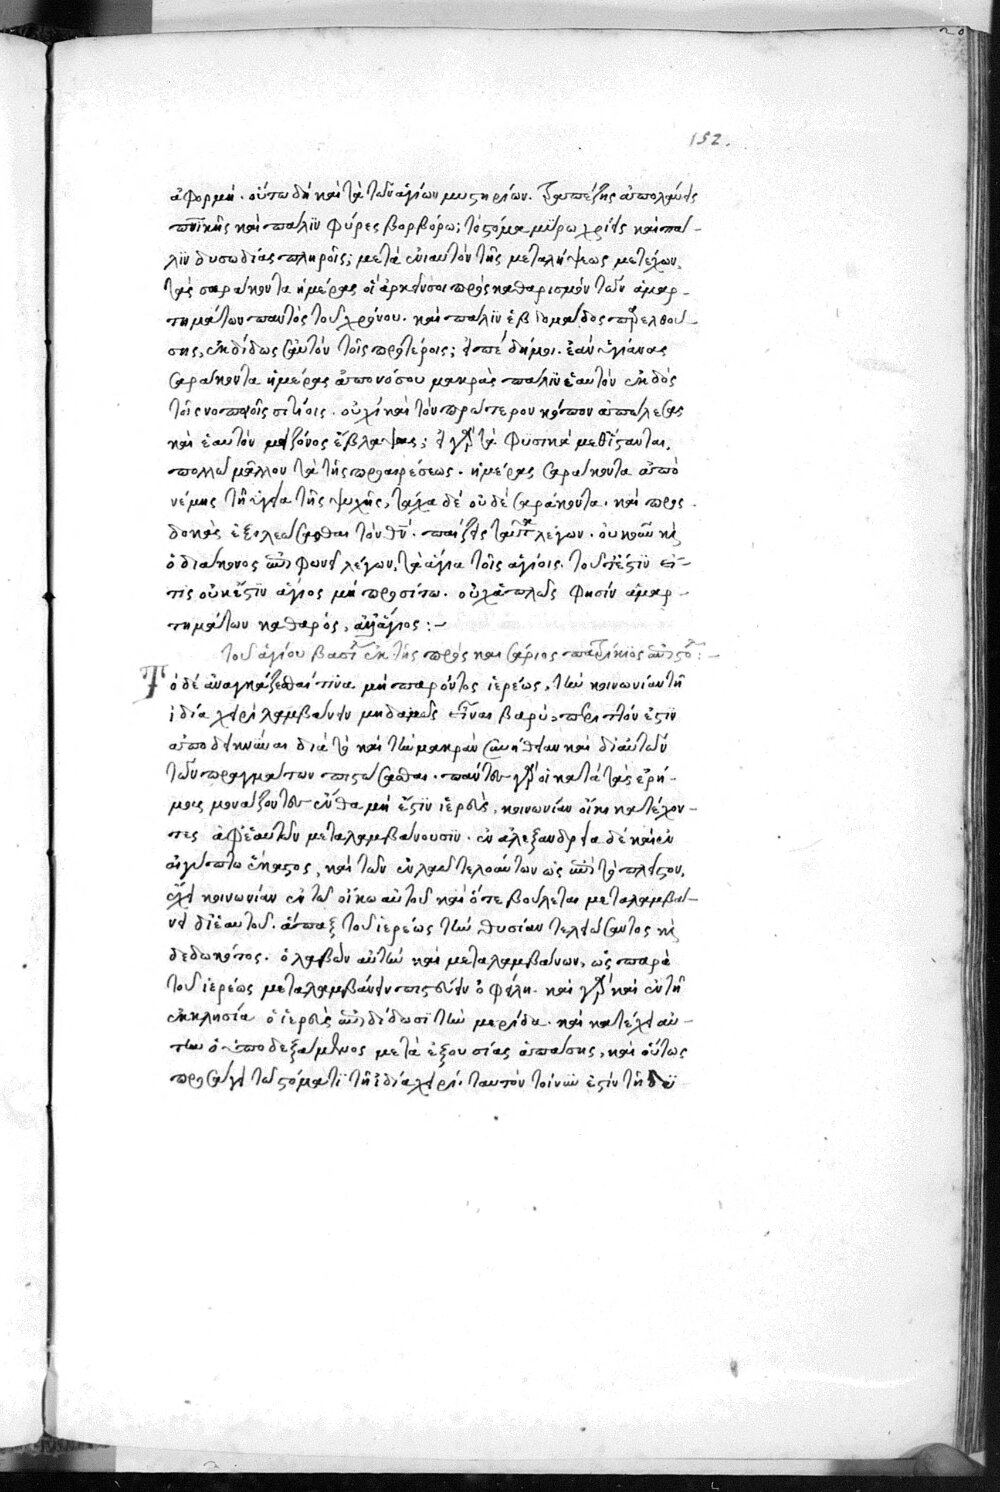 152.
ἀφορμή. οὕτω δὴ καὶ τὰ τῶν ἁγίων μυστηρίων. τραπέζης ἀπολαύεις
πνϊκῆς καὶ πάλϊν φύρεις βορβόρω; τὸ στόμα μύρω χρίεις καὶ πά-
λϊν δυσωδίας πληροῖς; μετὰ ἐνιαυτὸν τῆς μεταλήψεως μετέχων,
τὰς σαράκοντα ἡμέρας οἴει ἀρκέσαι πρὸς καθαρισμὸν τῶν ἁμαρ-
τημάτων παντὸς τοῦ χρόνου. καὶ πάλϊν ἑβδομάδος παρελθού-
σης, ἐκδίδως σαυτὸν τοῖς προτέροις; εἰπὲ δή μοι. ἐὰν ὑγιάνας
σαράκοντα ἡμέρας ἀπὸ νόσου μακρᾶς πάλϊν ἑαυτὸν ἐκδῶς
τοῖς νοσοποιοῖς σιτίοις. οὐχὶ καὶ τὸν πρότερον κόπον ἀπώλεσας
καὶ ἑαυτὸν μειζόνως ἔβλαψας; εἰ γὰρ τὰ φυσικὰ μεθίσταται,
πολλῶ μᾶλλον τὰ τῆς προαιρέσεως. ἡμέρας σαράκοντα ἀπο
νέμεις τῆ ὑγεία τῆς ψυχῆς, τάχα δὲ οὐδὲ σαράκοντα. καὶ προσ
δοκᾶς ἐξιλεώσασθαι τὸν θν̄. παίζεις ταῦτα λέγων. οὐκοῦν καὶ
ὁ διάκονος ἐπιφωνεῖ λέγων, τὰ ἅγια τοῖς ἁγίοις. τοῦτ' ἔστϊν εἴ
τις οὐκ ἔστϊν ἅγιος μὴ προσίτω. οὐχ ἁπλῶς φησὶν ἁμαρ-
τημάτων καθαρός, ἀλλ' ἅγιος :-
τοῦ ἁγίου βασι ἐκ τῆς πρὸς καισάριος πατρίκιος ἐπιστο :-
Τὸ δὲ ἀναγκάζεσθαι τϊνα μὴ παρόντος ἱερέως, τὴν κοινωνίαν τῆ
ἰδία χειρὶ λαμβάνειν μηδαμῶς εἶναι βαρύ, περιττόν ἐστϊν
ἀποδεικνύναι διὰ τὸ καὶ τὴν μακρὰν συνήθειαν καὶ δι' αὐτῶν
τῶν πραγμάτων πιστώσασθαι. πάντες γὰρ οἱ κατὰ τὰς ἐρή-
μοις μονάζοντες ἔνθα μὴ ἔστϊν ἱερεὺς, κοινωνίαν οἴκοι κατέχον-
τες ἀφ' ἑαυτῶν μεταλαμβάνουσϊν. ἐν ἀλεξανδρεία δὲ καὶ ἐν
αἰγύπτω ἕκαστος, καὶ τῶν ἐν λαῶ τελούντων ὡς ἐπὶ τὸ πλεῖστον,
ἔχει κοινωνίαν ἐν τῶ οἴκω αὐτοῦ καὶ ὅτε βούλεται μεταλαμβά-
νει δι' ἑαυτοῦ. ἅπαξ τοῦ ἱερέως τὴν θυσίαν τελειώσαντος καὶ
δεδωκότος. ὁ λαβὼν αὐτὴν καὶ μεταλαμβάνων, ὡς παρὰ
τοῦ ἱερέως μεταλαμβάνειν πιστεύειν ὀφείλει. καὶ γὰρ καὶ ἐν τῆ
ἐκκλησία ὁ ἱερεὺς ἐπιδίδωσϊ τὴν μερίδα. καὶ κατέχει αὐ-
τὴν ὁ ὑποδεξάμενος μετὰ ἐξουσίας ἁπάσης, καὶ οὕτως
προσάγει τῶ στόματϊ τῆ ἰδία χειρί. ταυτὸν τοίνυν ἐστὶν τῆ δυ